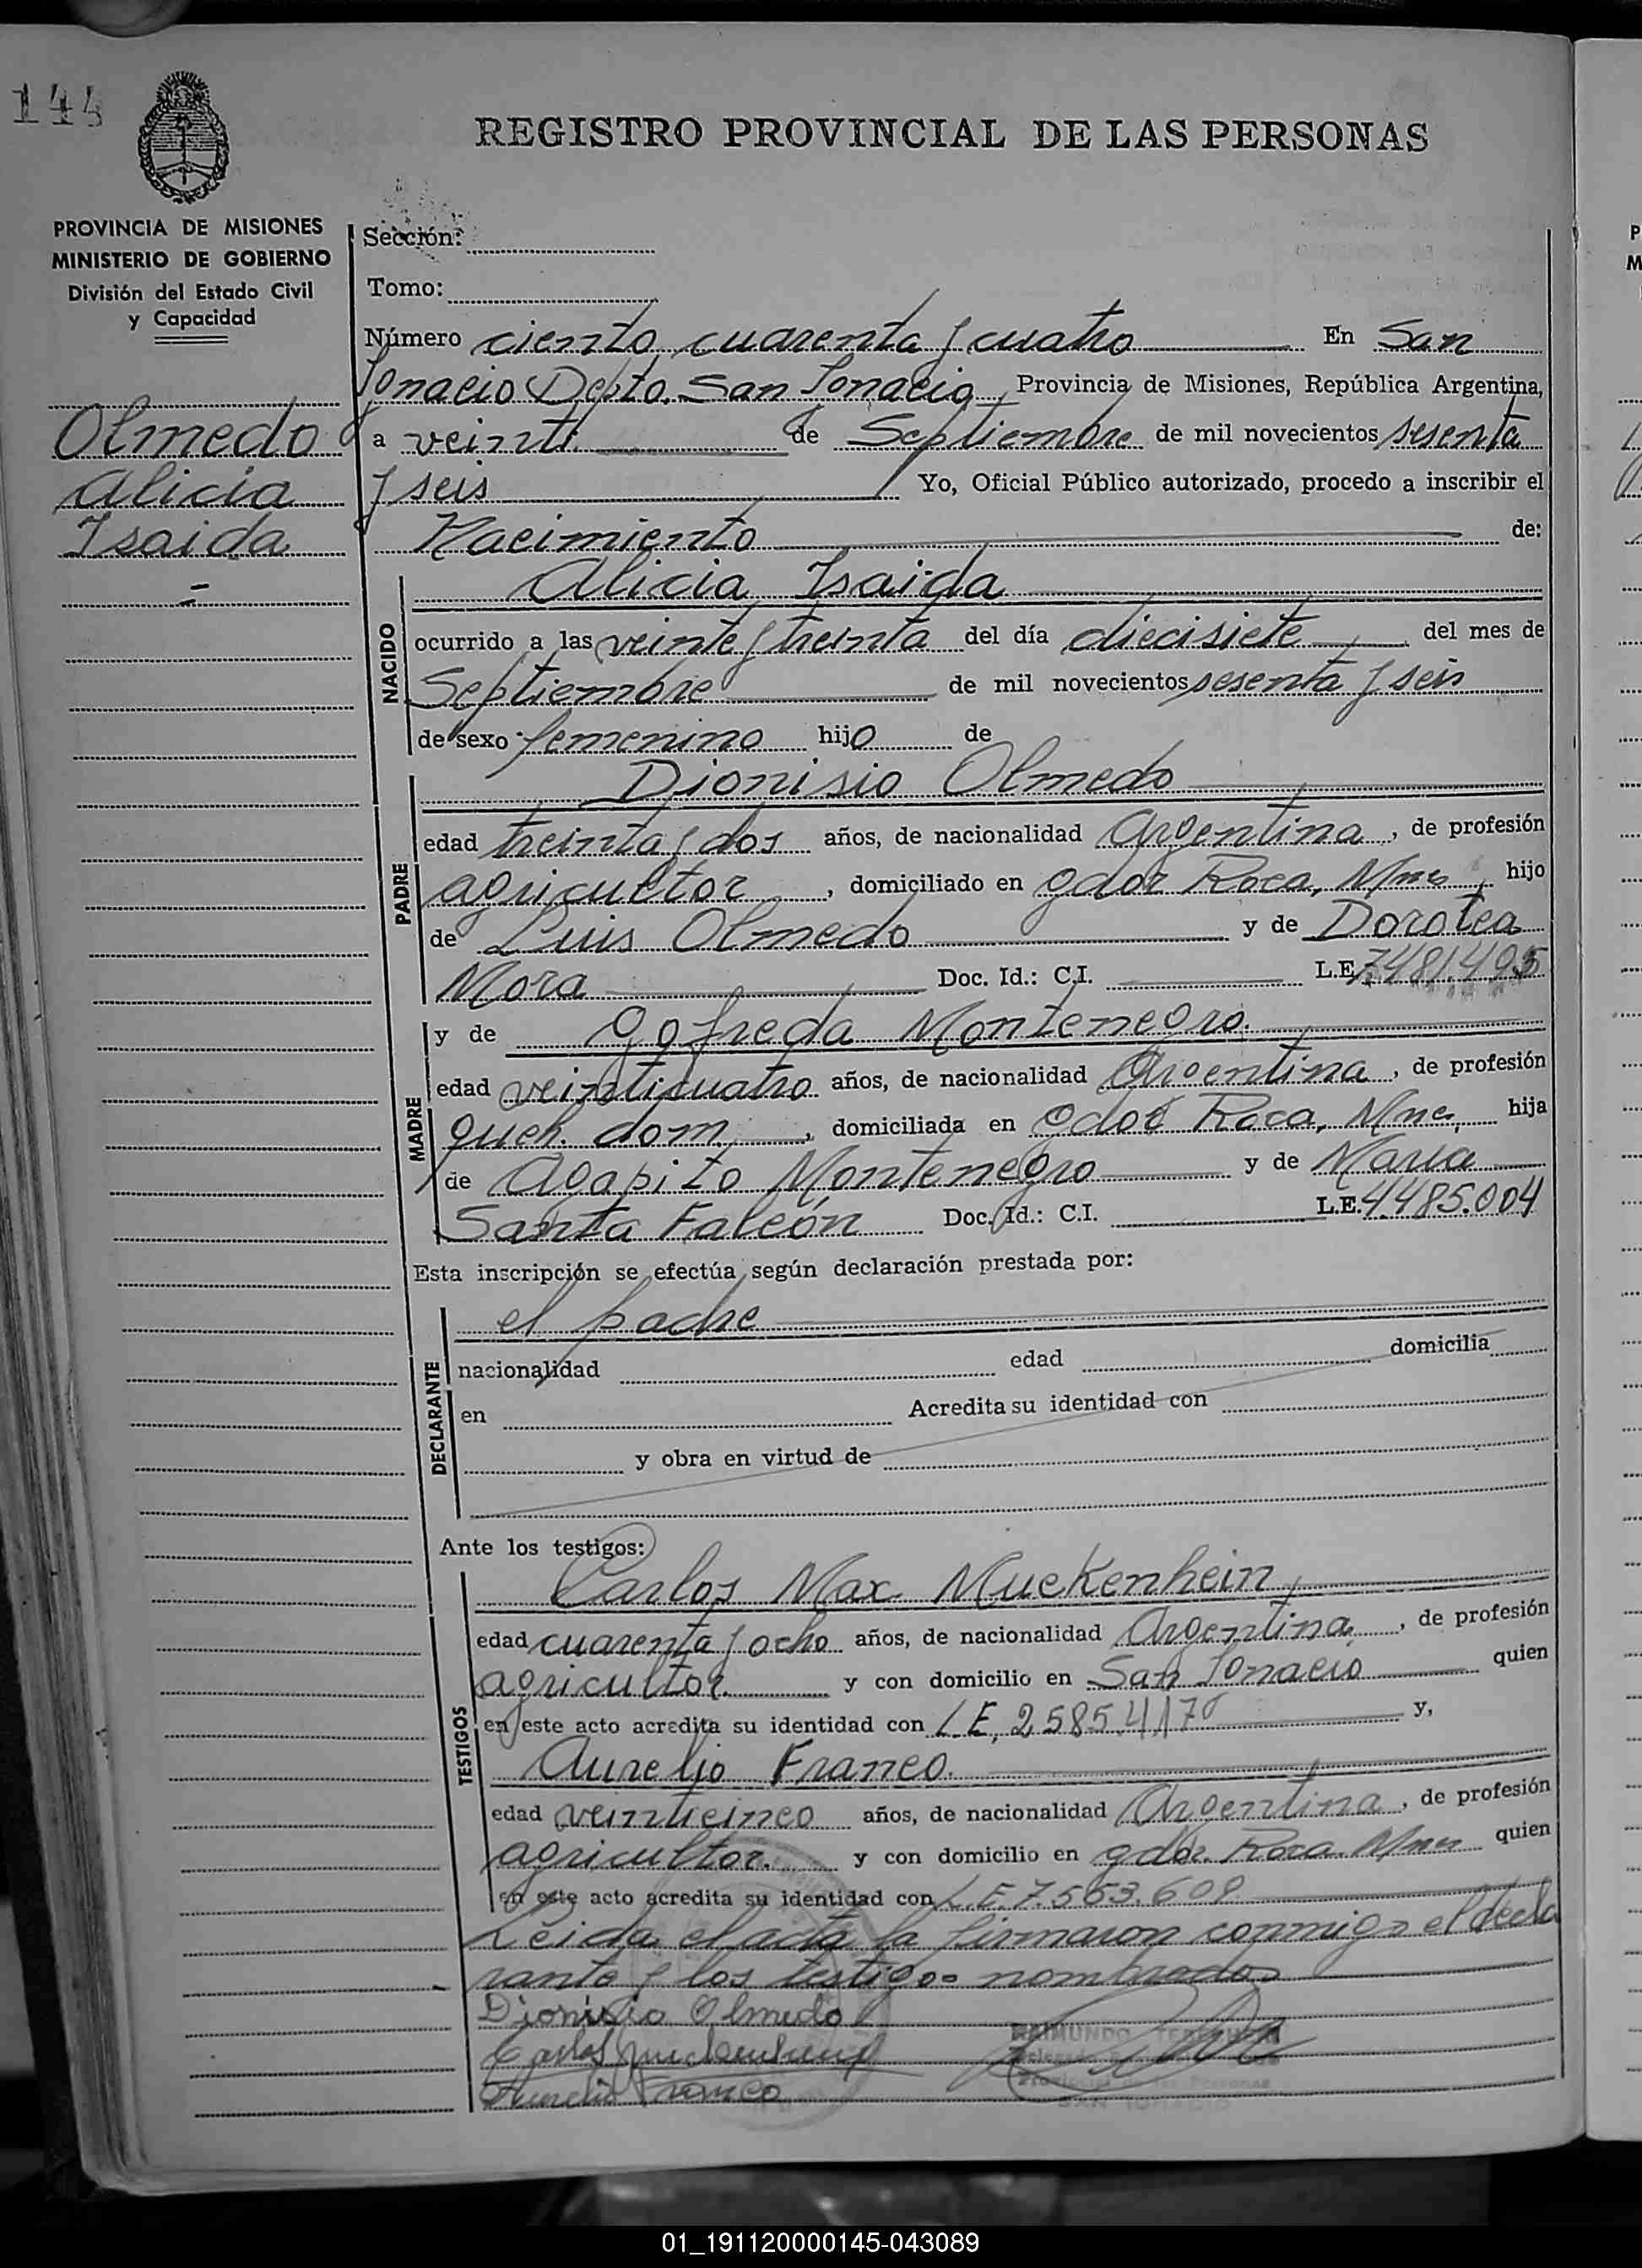 144
REGISTRO PROVINCIAL DE LAS PERSONAS
PROVINCIA DE MISIONES
MINISTERIO DE GOBIERNO
División del Estado Civil
y Capacidad
Olmedo
Alicia
Isaida
-
Sección:
Tomo:
Número ciento cuarenta y cuatro En San
Ignacio Depto. San Ignacio, Provincia de Misiones, República Argentina,
a veinte de Septiembre de mil novecientos sesenta
y seis Yo, Oficial Público autorizado, procedo a inscribir el
Nacimiento de:
NACIDO
Alicia Isaida
ocurrido a las veinte y treinta del día diecisiete del mes de
Septiembre de mil novecientos sesenta y seis
de sexo femenino hijo de
PADRE
Dionisio Olmedo
edad treinta y dos años, de nacionalidad Argentina, de profesión
agricultor, domiciliado en gdor Roca, Mnes, hijo
de Luis Olmedo y de Dorotea
Mora Doc. Id.: C.I. L.E. 7481.495
MADRE
y de Gofreda Montenegro.
edad veinticuatro años, de nacionalidad Argentina, de profesión
queh. dom., domiciliada en gdor Roca, Mnes, hija
de Agapito Montenegro y de María
Santa Falcón Doc. Id.: C.I. L.E. 4.485.004
Esta inscripción se efectúa según declaración prestada por:
DECLARANTE
el padre
nacionalidad edad domicilia
en Acredita su identidad con
y obra en virtud de
Ante los testigos:
TESTIGOS
Carlos Max Muckenhein
edad cuarenta y ocho años, de nacionalidad Argentina, de profesión
agricultor. y con domicilio en San Ignacio quien
en este acto acredita su identidad con L.E. 2585.417 y,
Aurelio Franco.
edad veinticinco años, de nacionalidad Argentina, de profesión
agricultor. y con domicilio en gdor. Roca. Mnes quien
en este acto acredita su identidad con L.E. 7.553.609
Leida el acta la firmaron conmigo el decla
rante y los testigos nombrados
Dionisio Olmedo
Carlos Muckenhein
Aurelio Franco
RAIMUNDO
SAN IGNACIO
01_191120000145-043089